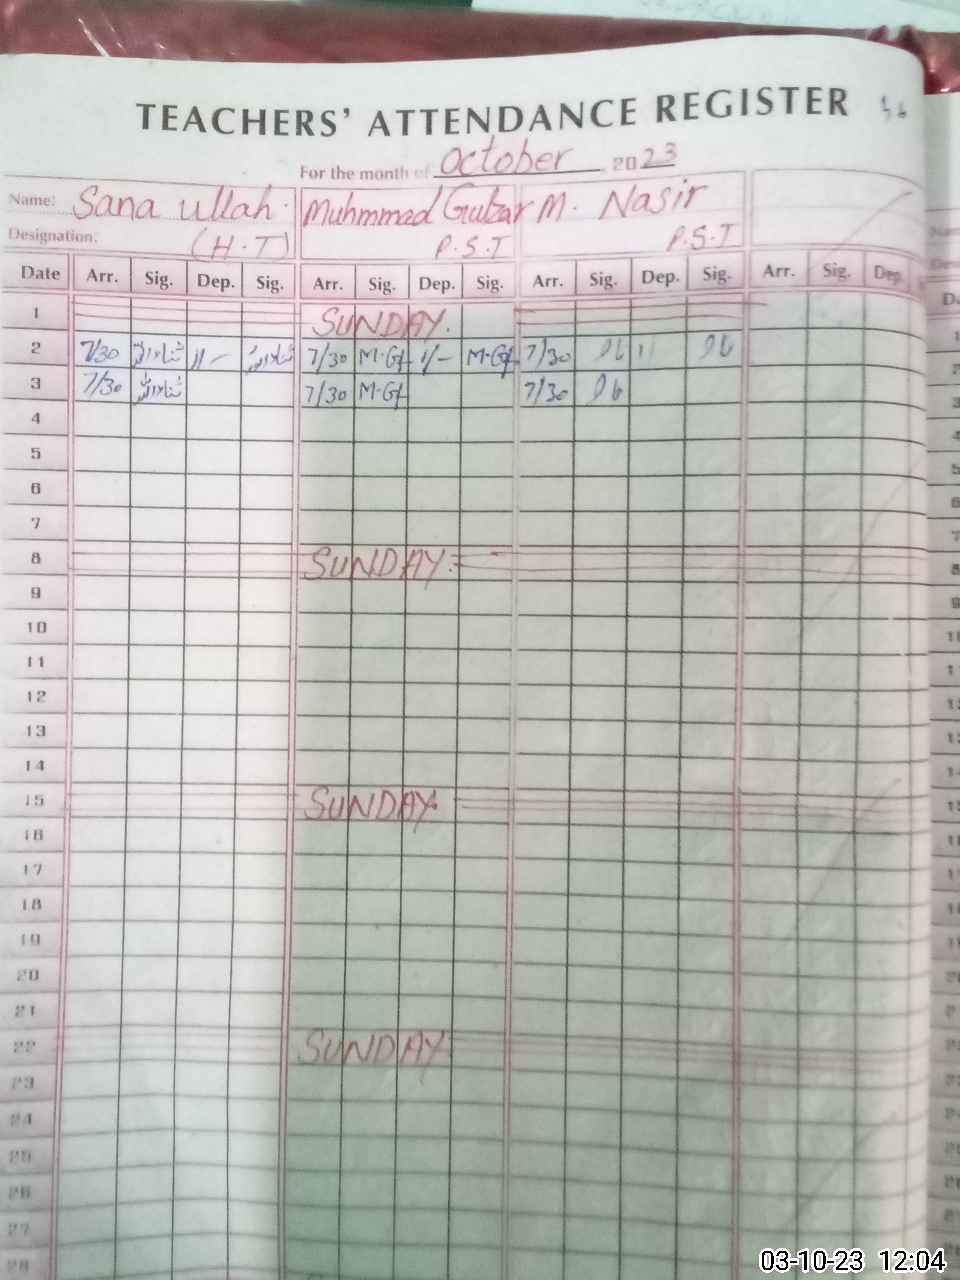 TEACHERS' ATTENDANCE REGISTER
For the month of October 2023
Name: Sana ullah. Muhmmad Gulzar M. Nasir
Designation: (H.T) P.S.T P.S.T
Date Arr. Sig. Dep. Sig. Arr. Sig. Dep. Sig. Arr. Sig. Dep. Sig. Arr. Sig. Dep.
1 SUNDAY.
2 7/30 ثناءاللہ 11/- ثناءاللہ 7/30 M-Gf 1/- M-Gf 7/30 11
3 7/30 ثناءاللہ 7/30 M-Gf 7/30
4
5
6
7
8 SUNDAY
9
10
11
12
13
14
15 SUNDAY
16
17
18
19
20
21
22 SUNDAY
23
24
25
26
27
28
03-10-23 12:04